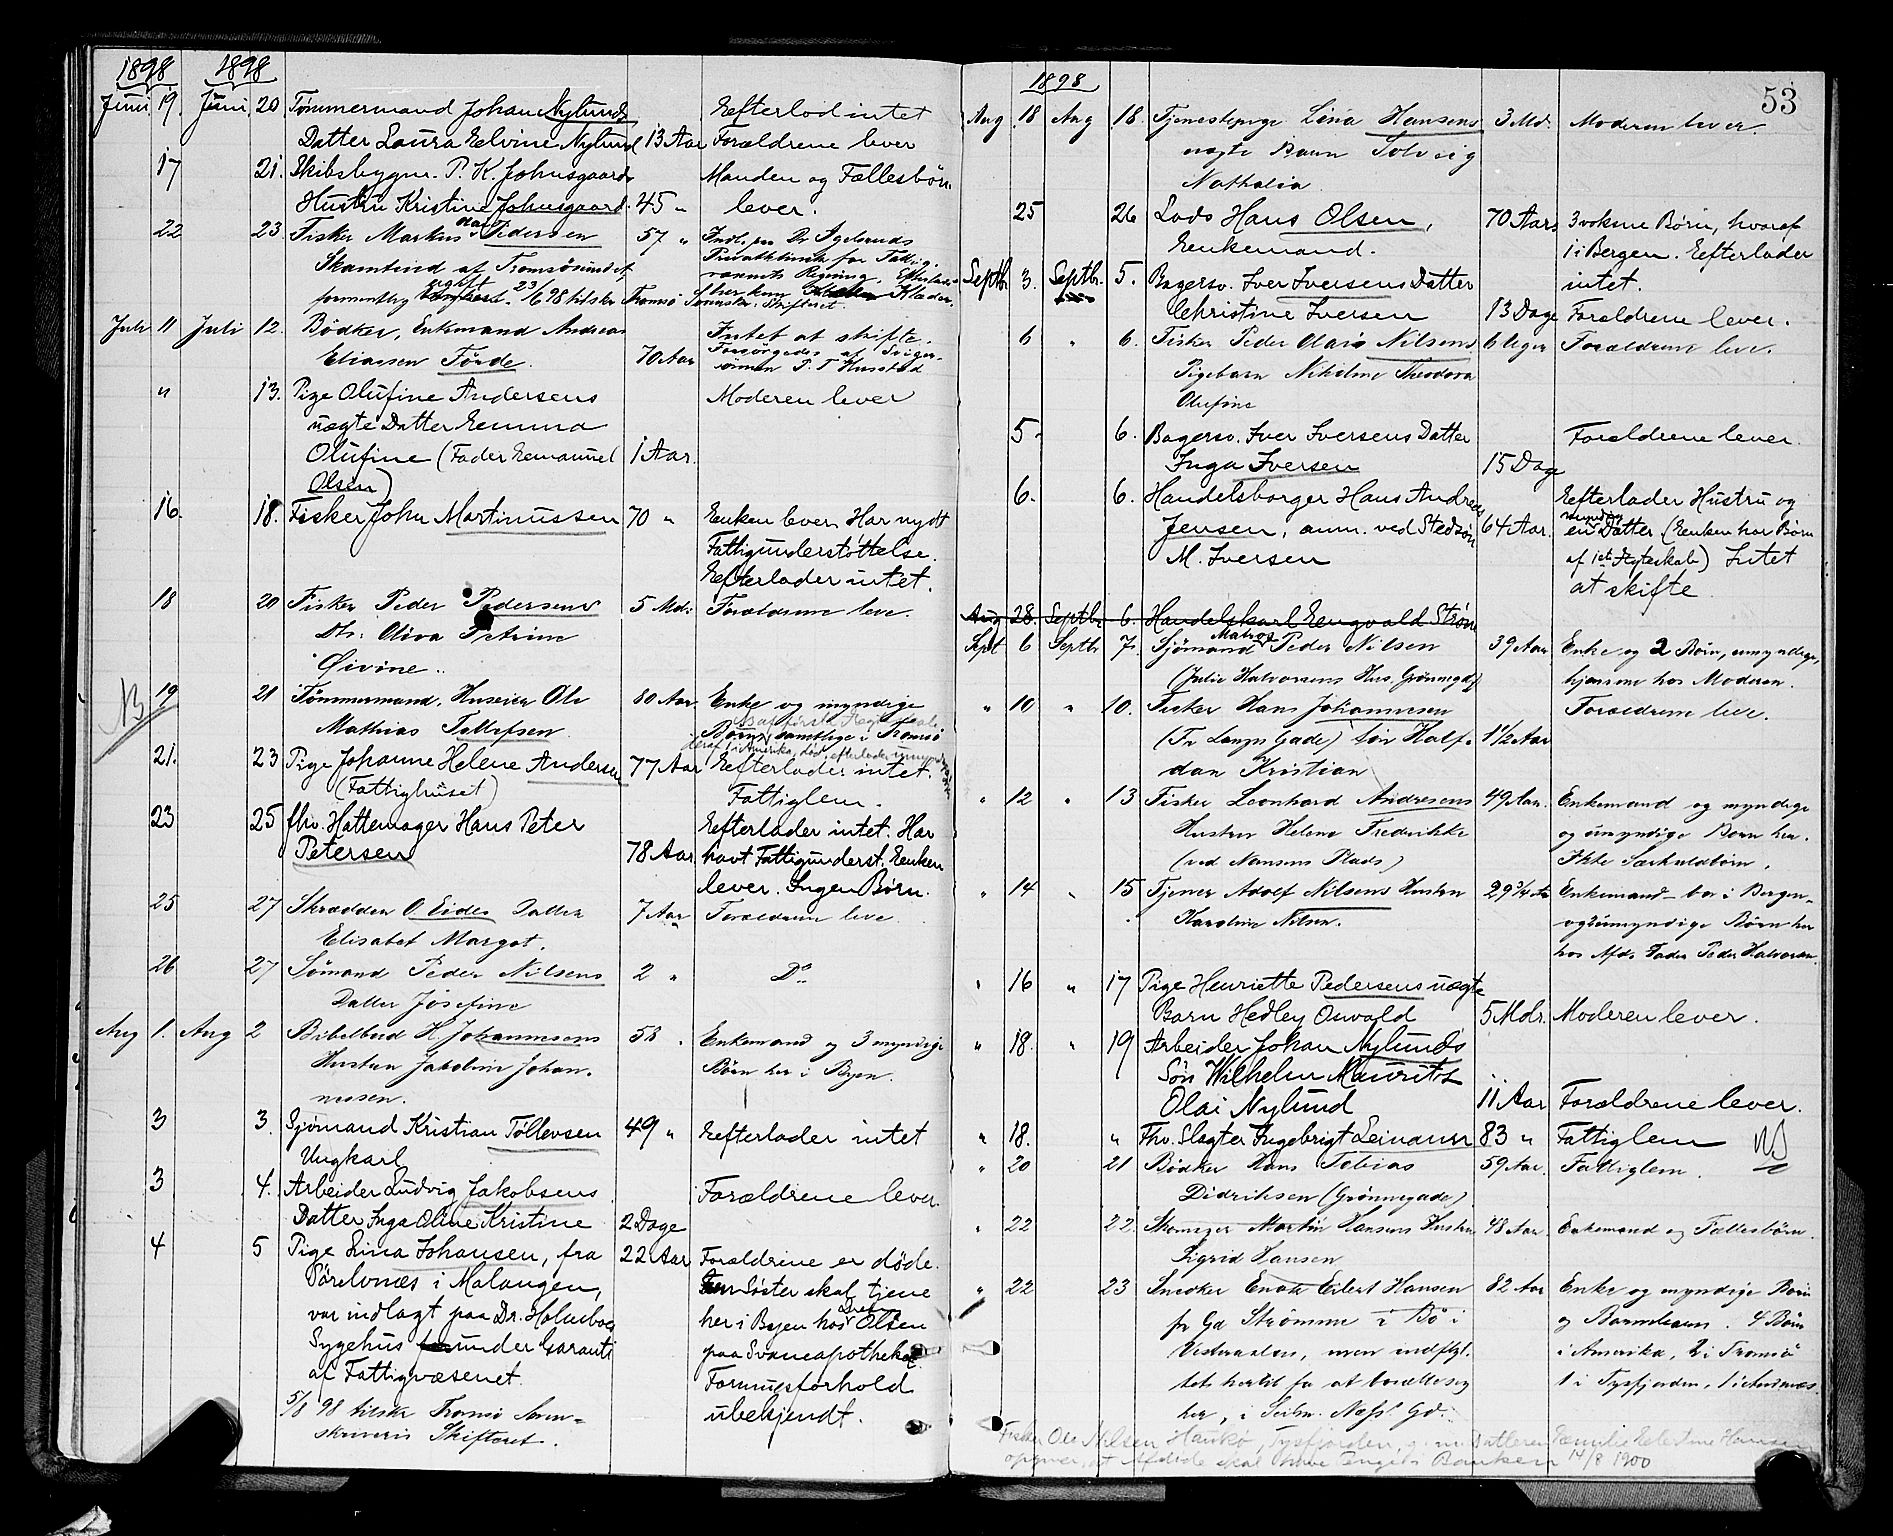 1898 1898
Juni 19. Juni 20 Tømmermand Johan Nylunds Efterlod intet
Datter Laura Elvine Nylund 13 Aar Forældrene lever
17 21. Skibsbygm. P. K. Johnsgaards Manden og Fællesbörn
Hustru Kristine Johnsgaard. 45 " lever.
22 23. Fisker Markus Pedersen 57 " Indl. paa Dr
Skamtind af Tromsøsundet, Privatklinik for Fattig-
formentlig ugift 23/6 98 tilskr. Tromsø Regning. Klæder.
Juli 11 Juli 12. Bödker, Enkemand Andreas Intet at skifte.
Eliassen Förde. 70 Aar Forsörgedes af Sviger-
sönnen P. T Husstad
" 13. Pige Olufine Andersens Moderen lever
uægte Datter Emma
Olufine (Fader Emanuel 1 Aar.
Olsen)
16. 18. Fisker John Martinussen 70 " Enken lever. Har nydt
Fattigunderstöttelse.
Efterlader intet.
18 20 Fisker Peder Pedersens 5 Mdr. Forældrene leve.
Dtr. Oliva Petrine
Öivine..
NB 19 21 Tömmermand, Huseier Ole 80 Aar Enke og myndige
Mathias Tollefsen Börn, samtlige i Tromsö
21. 23 Pige Johanne Helene Andersen 77 Aar Efterlader intet.
(Fattighuset) Fattiglem.
23 25 fhv. Hattemager Hans Peter Efterlader intet. Har
Petersen 78 Aar. havt Fattigunderst. Enken
lever. Ingen Børn.
25 27 Skrædder O. Eides Datter 7 Aar Forældrene leve.
Elisabet Margot.
26 27 Sömand Peder Nilsens 2 " Do.
Datter Josefine
Aug 1. Aug 2 Bibelbud H Johannesens 58 " Enkemand og 3 myndige
Hustru Jakobine Johan- Börn her i Byen.
nesen.
3 3. Sjømand Kristian Töllevsen 49 " Efterlader intet
Ungkarl
3 4. Arbeider Ludvig Jakobsens Forældrene lever.
Datter Inga Oline Kristine 2 Dage
4 5 Pige Lina Johansen, fra 22 Aar Forældrene er døde.
i Malangen, Søster skal tjene
var indlagt paa Dr. Holmboes her i Byen hos Olsen
Sygehus under Garanti paa Svaneapotheket
af Fattigvæsenet. Formuesforhold
5/8 98 tilskr Tromsö Soren- ubekjendt.
skriveris Skifteret.
53
1898
Aug 18 Aug 18. Tjenestepige Lina Hansens 3 Md. Moderen lever.
uægte Barn Solveig
Nathalia.
25 26 Lods Hans Olsen, 70 Aar 3 voksne Børn, hvoraf
Enkemand. 1 i Bergen. Efterlader
intet.
Septb. 3. Septbr. 5. Bagersv. Iver Iversens Datter
Christine Iversen 13 Dage Forældrene lever.
6 " 6. Fisker Peder Olais Nilsens 6 Uger Forældrene leve.
Pigebarn Nikoline Theodora
Olufine
5. 6. Bagersv. Iver Iversens Datter Forældrene lever.
Inga Iversen 15 Dage
6. 6. Handelsborger Hans Andreas Efterlader Hustru og
Jensen, anm. ved Stedsøn 64 Aar. en myndig Datter (Enken har Børn
M. Iversen af 1ste Ægteskab) Intet
at skifte
Aug 28. Septbr. 6. Handelskarl Engvald Ström
Sept 6 Septbr 7. Sjömand Matros Peder Nilsen 39 Aar Enke og 2 Börn, umyndige,
(Julie Halvorsens Hus. Grönnegd.) hjemme hos Moderen.
" 10 " 10. Fisker Hans Johannesen Forældrene leve.
(Fr Langes Gade) Sön Half- 1 1/2 Aar
dan Kristian
" 12 " 13 Fisker Leonhard Andresens 49 Aar. Enkemand og myndige
Hustru Helene Fredrikke og umyndige Børn her.
(ved Nansens Plads) Ikke Særkuldbörn.
" 14 " 15 Tjener Adolf Nilsens Hustru 29 3/4 Aar Enkemand bor i Bergen
Karoline Nilsen. og umyndige Børn her
hos Afd. Fader Peder Halvorsen.
" 16 " 17 Pige Henriette Pedersens uægte
Barn Hedley Osvald 5 Mdr. Moderen lever.
" 18. " 19 Arbeider Johan Nylunds
Sön Wilhelm Mauritz
Olai Nylund 11 Aar Forældrene lever.
" 18. " Fhv. Slagter Ingebrigt 83 " Fattiglem NB
" 20 21 Bødker Hans Tobias 59 Aar. Fattiglem.
Didriksen (Grønnegade)
" 22 22. Skomager Martin Hansens Hustru 48 Aar. Enkemand og Fællesbörn.
Sigrid Hansen
" 22 23 Snedker Enok Eilert Hansen 82 Aar Enke og myndige Börn
fr Gd Strømme i Bö i og Barnebarn. 4 Börn
Vesteraalen, men indflyt- i Amerika, 2 i Tromsö
tet hertil for at bosætte sig 1 i Tysfjorden,
her, i
Fisker Ole Nilsen Haukø, Tysfjorden, g. m. Datteren Hansen
opgiver, at Afdøde skal have Penge i Banken 14/8 1900